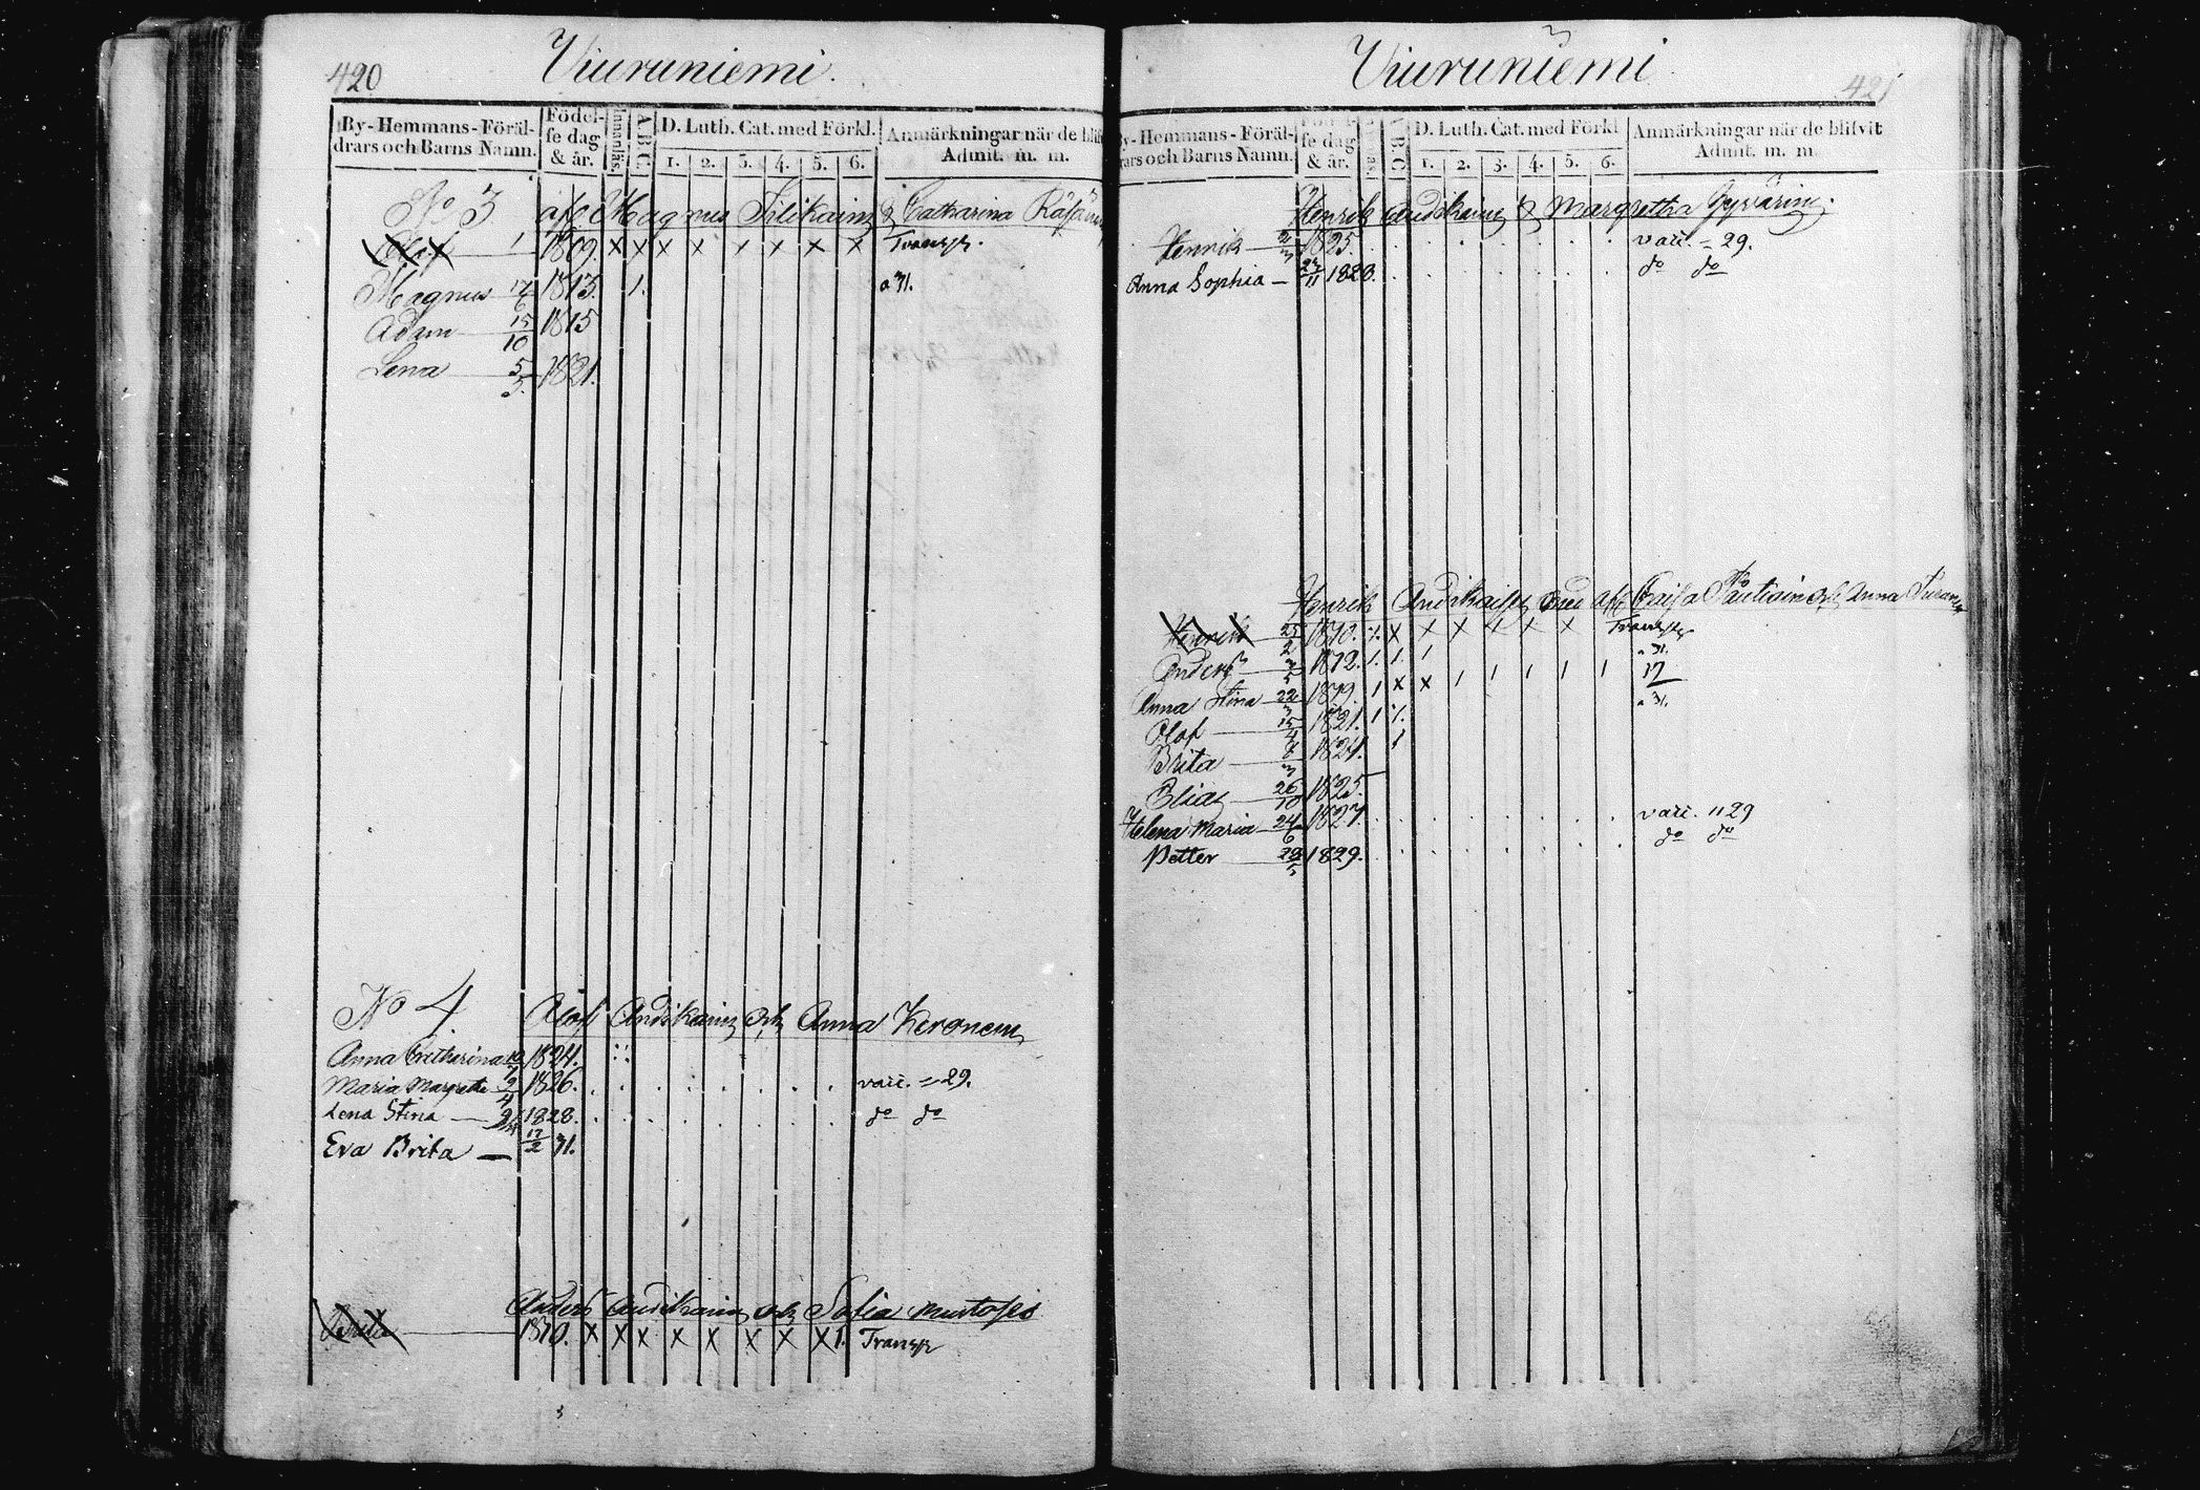 420
Viuruniemi.
By-Hemmans-Föräl-drars och Barns Namn.
Födel-se dag & år.
Innanläs.
A.B.C.
D. Luth. Cat. med Förkl.
1. 2. 3. 4. 5. 6.
Anmärkningar när de blif
Admit. m. m.
No 3 afl Magnus Silikain & Catharina Räsän
Olof 1 1809. x x x x x x x x Transp.
Magnus 17/6 1813. 1. a 31.
Adam 15/10 1815
Lena 5/3 1821.
No 4. Olof Andikain och Anna Keronen
Anna Catharina 10/7 1824. ::
Maria Margetha 2/4 1826. . . . . . . . . vacc. = 29.
Lena Stina 1828. . . . . . . . . do do
Eva Brita 17/2 31.
Anders Andikain och Sofia Mustoses
Brita 1810. x x x x x x x x 1. Transp
421
Viuruniemi
By-Hemmans-Föräl-
rars och Barns Namn.
se dag & år.
B.C
D. Luth. Cat. med Förkl
1. 2. 3. 4. 5. 6.
Anmärkningar när de blifvit
Admit. m. m.
Henrik Andikain & Margretha Hyvärin.
Henrik 2/3 1825. . . . . . . . . vacc. = 29.
Anna Sophia 27/11 1828. . . . . . . . . do do
Henrik Andikain med afl Caisa Pautiain och Anna
Henrik 25/2 1810. x x x x x x Transp
Anders 1812. 1. 1. 1 a 31.
Anna Stina 22/3 1819. 1 x x 1 1 1 1 1 17
Olof 15/4 1821. 1 a 31.
Brita 8/3 1824. 1
Elias 26/10 1825.
Helena Maria 24/6 1827. . . . . . . . . vacc. " 29
Petter 29/5 1829. . . . . . . . . do do